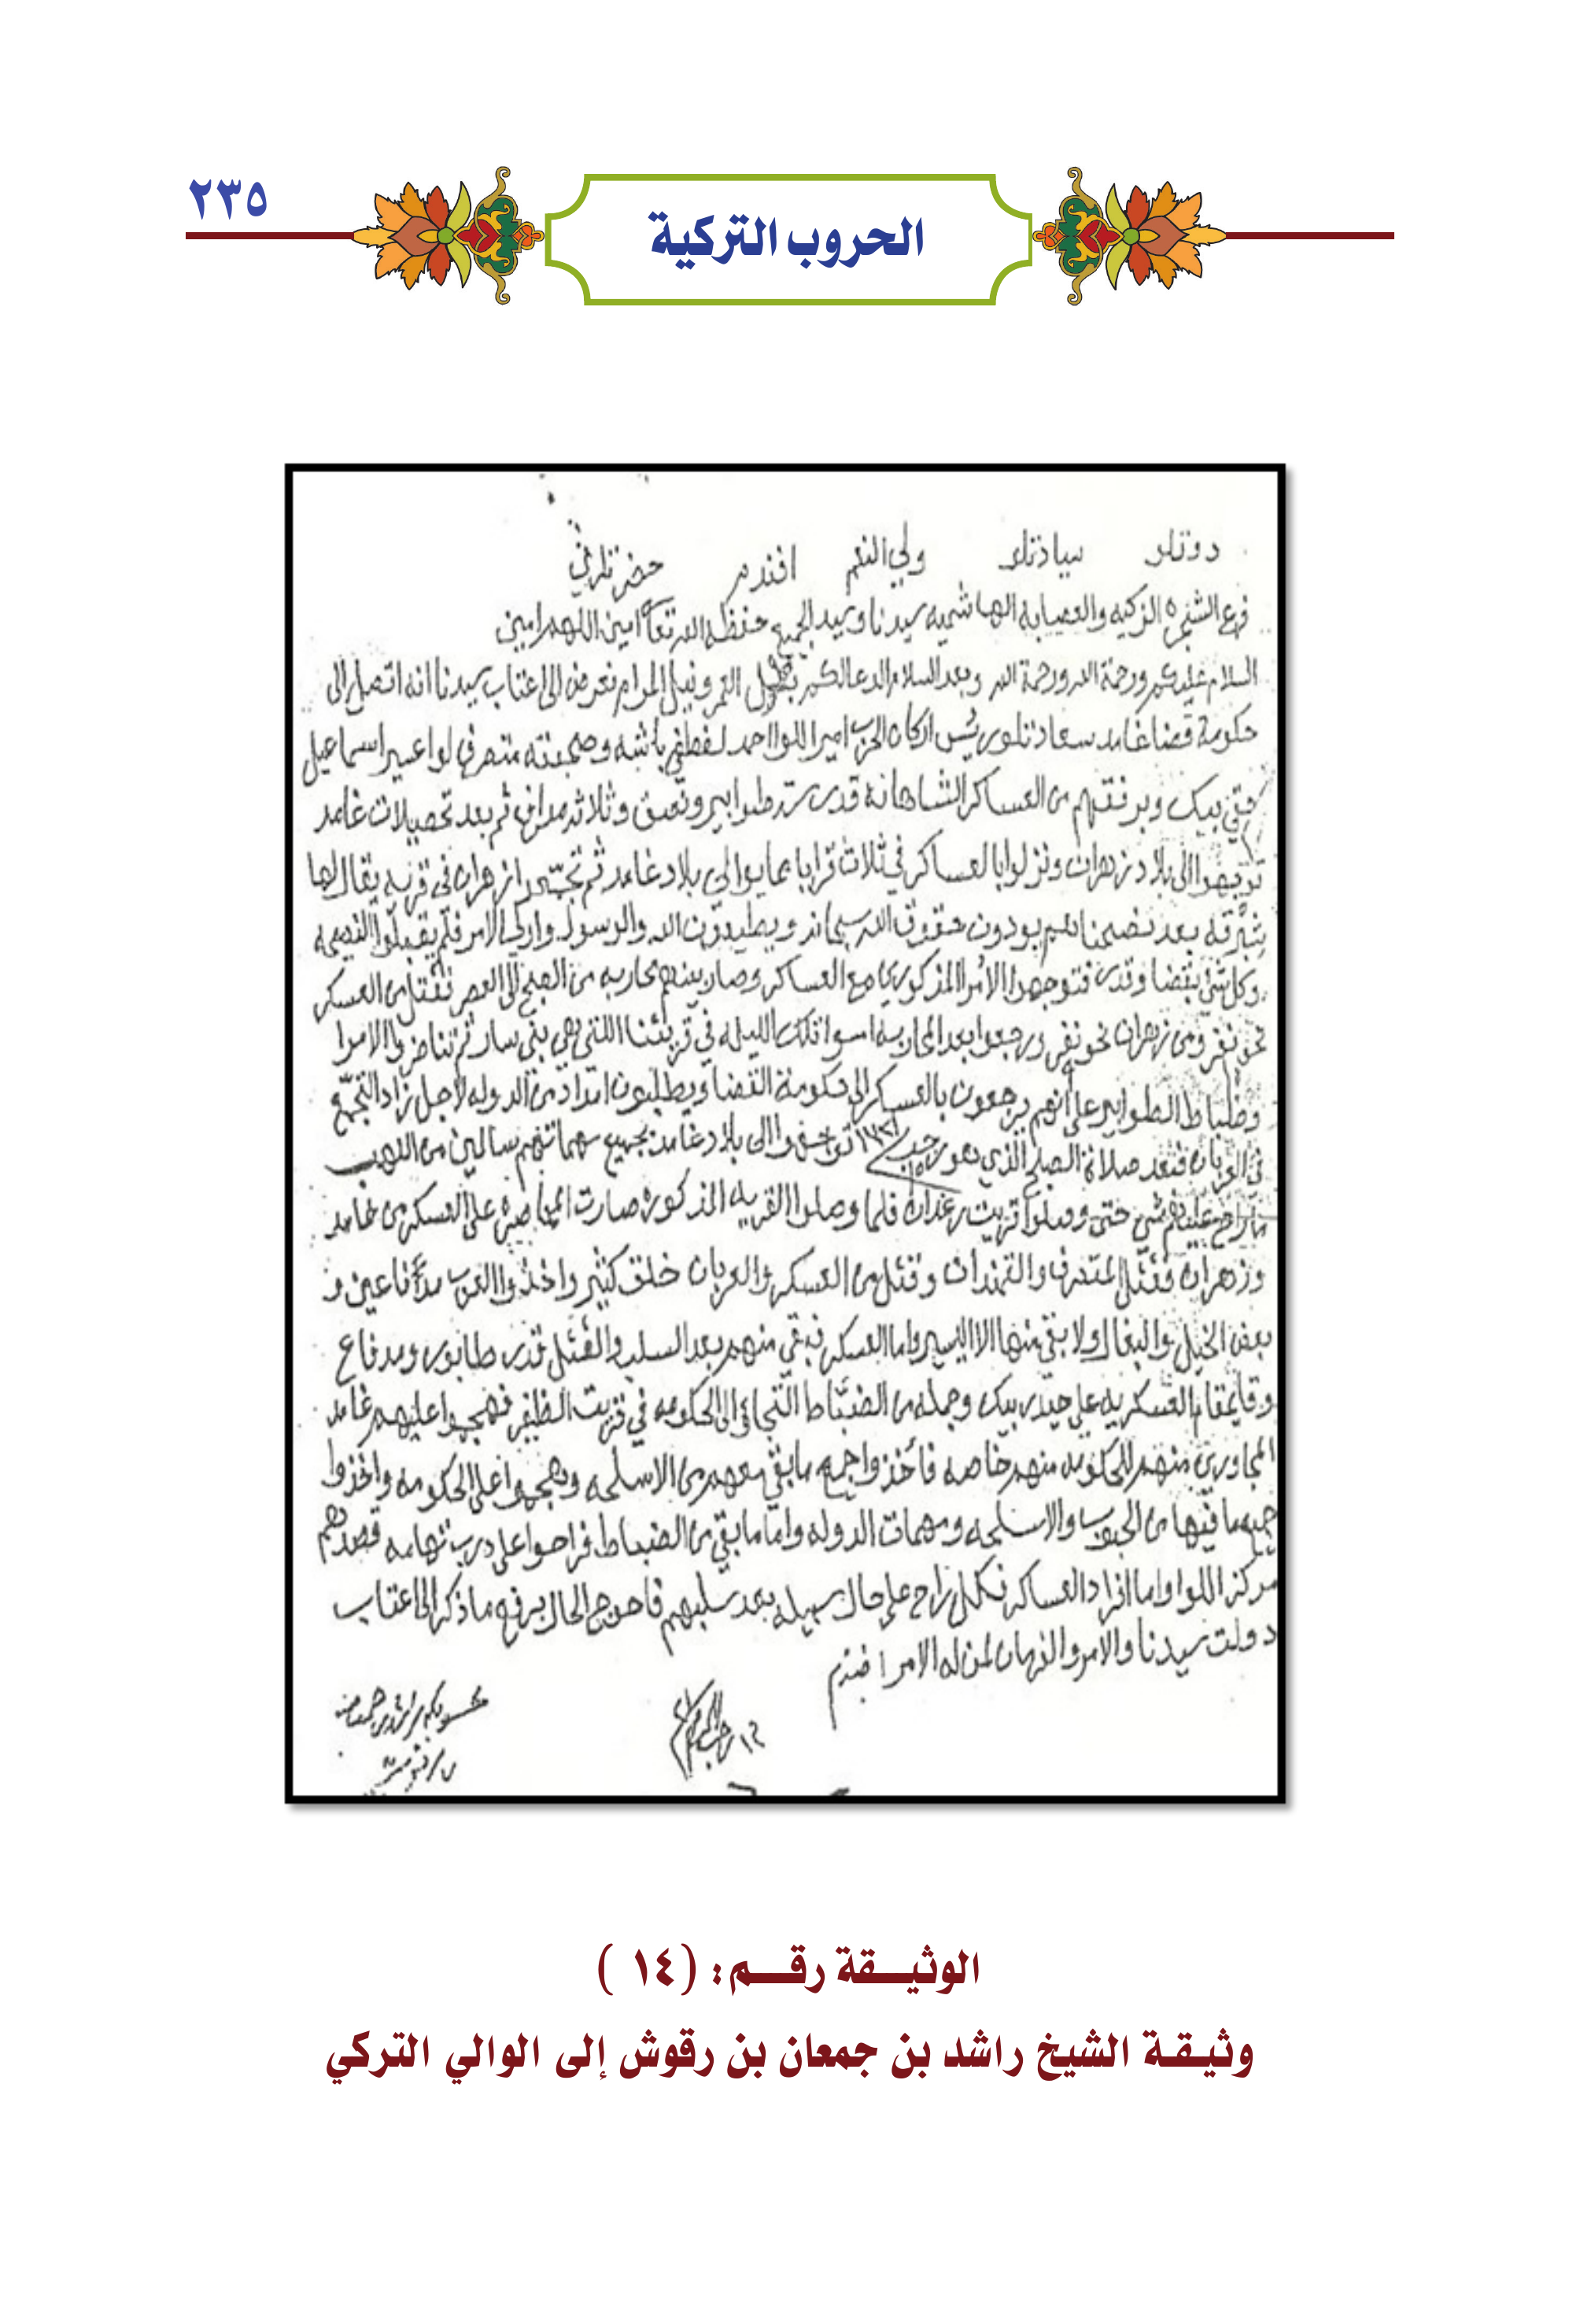 ٢٣٥
الحروب التركية
دولتلو سيادتلو ولي النعم افندم حضرتلري
فرع الشجره الزكيه والعصابه الهاشميه سيدنا وسيد الجميع حفظه الله تعا امين اللهم امين
السلام عليكم ورحمة الله ورحمة الله وبعد السلام الدعا لكم بطول العمر ونيل المرام نعرض الى اعتاب سيدنا انه اتصل الى
حكومة قضا غامد سعادتلو رئيس اركان الحرب امير اللوا احمد لطفي باشه وصحبته متصرف لوا عسير اسماعيل
حقي بيك وبرفقتهم من العساكر الشاهانه قدر ستة طوابير ونصف وثلاثه مدافع ثم بعد تحصيلات غامد
توجهوا الى بلاد زهران ونزلوا بالعساكر في ثلاث قرايا مما يوالي بلاد غامد ثم تجمهروا زهران في قريه يقال لها
بشرقه بعد نصحنا لهم يودون حقوق الله سبحانه ويطيعون الله والرسول واولي الامر فلم يقبلوا النصيحه
وكل شي بقضا وقدر فتوجهوا الامرا المذكورين مع العساكر وصار بينهم محاربه من الصبح الى العصر فقتل من العسكر
نحو نفر ومن زهران نحو نفر ورجعوا بعد المحاربه امسوا تلك الليله في قريتنا اللتي هي بني سار ثم تناضروا الامرا
وضباط الطوابير على انهم يرجعون بالعسكر الى حكومة القضا ويطلبون امداد من الدوله لاجل زاد التجمع
في العربان فبعد صلاة الصبح الذي هو ١٥ رجب ١٣٢١ توجهوا الى بلاد غامد بجميع مهماتهم سالمين من النهب
ما راح عليهم شي حتى وصلوا قريت رغدان فلما وصلوا القريه المذكوره صارت المحاصره على العسكر من غامد
وزهران فقتل المتصرف والقمندان وقتل من العسكر والعربان خلق كثير واخذوا العرب مدفاعين و
بعض الخيل والبغال ولا بقي منها الا اليسير واما العسكر فبقي منهم بعد السلب والقتل قدر طابور ومدفاع
وقايمقام العسكريه علي حيدر بيك وجمله من الضباط التجاؤ الى الحكومه في قريت الظفير فهجموا عليهم غامد
المجاورين منهم للحكومه منهم خاصه فأخذوا جميع ما بقي معهم من الاسلحه وهجموا على الحكومه واخذوا
جميع ما فيها من الحبوب والاسلحه ومهمات الدوله واما ما بقي من الضباط فراحوا على درب تهامه قصدهم
مركز اللوا واما افراد العساكر فكل راح على حال سبيله بعد سلبهم فاحوج الحال برفع ما ذكر الى اعتاب
دولت سيدنا والامر والفرمان لمن له الامر افندم
راشد بن جمعان
بن رقوش
الوثيـــقة رقـــم: (١٤ )
وثيـقـة الشيخ راشد بن جمعان بن رقوش إلى الوالي التركي